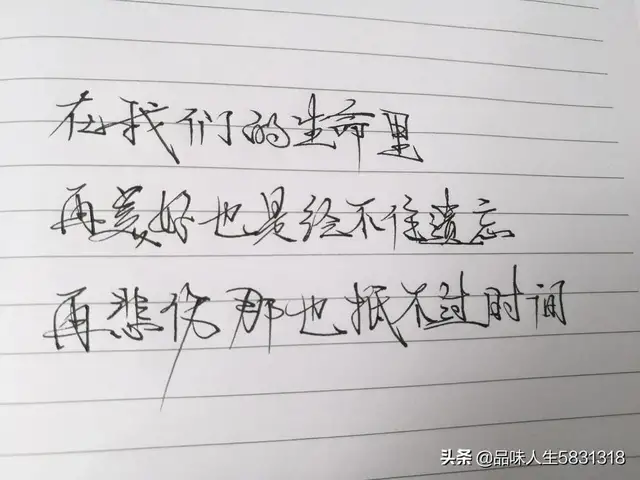 在我们的生命里
再美好也是经不住遗忘
再悲伤那也抵不过时间
头条 @品味人生5831318